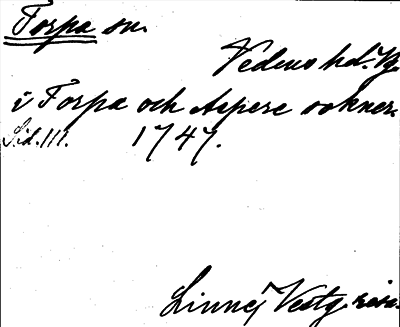 Torpa sn.
Vedens hd. Vg.
i Torpa och Aspere sokner.
Sid. 111. 1747.
Linnej Vestg. resa.